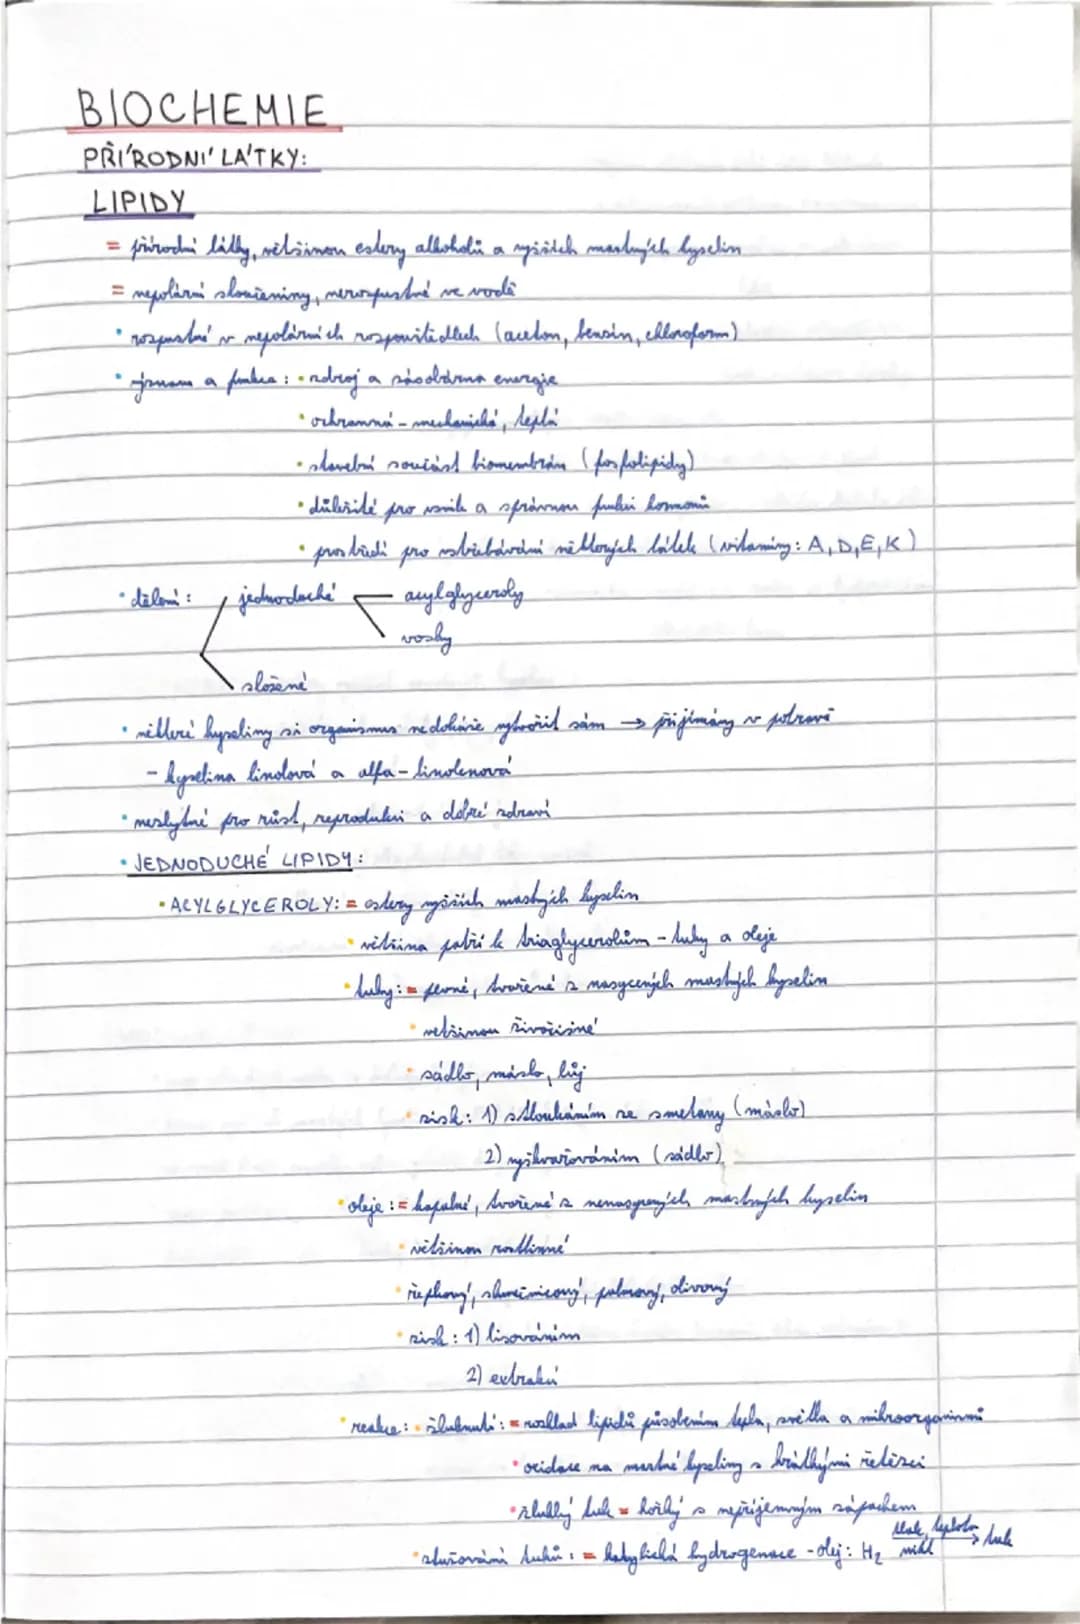 BIOCHEMIE
PŘÍRODNÍ LÁTKY:
LIPIDY
= přírodní látky, většinou estery alkoholů a vyšších mastných kyselin
= nepolární sloučeniny, nerozpustné ve vodě
• rozpustné v nepolárních rozpouštědlech (aceton, benzin, chloroform)
• význam a funkce: • zdroj a zásobárna energie
• ochranná - mechanická, teplá
• stavební součást biomembrán (fosfolipidy)
• důležité pro vznik a správnou funkci hormonů
• prostředí pro vstřebávání některých látek (vitaminy: A, D, E, K)
• dělení: jednoduché acylglyceroly
vosky
složené
• některé kyseliny si organismus nedokáže vytvořit sám → přijímány v potravě
- kyselina linolová a alfa-linolenová
• nezbytné pro růst, reprodukci a dobré zdraví
• JEDNODUCHÉ LIPIDY:
• ACYLGLYCEROLY: = estery vyšších mastných kyselin
• většina patří k triaglycerolům - tuky a oleje
• tuky: = pevné, tvořené z nasycených mastných kyselin
• většinou živočišné
• sádlo, máslo, lůj
• zisk: 1) stloukáním ze smetany (máslo)
2) vyškvařováním (sádlo)
• oleje: = kapalné, tvořené z nenasycených mastných kyselin
• většinou rostlinné
• řepkový, slunečnicový, palmový, olivový
• zisk: 1) lisováním
2) extrakcí
• reakce: • žluknutí: = rozklad lipidů působením tepla, světla a mikroorganismů
• oxidace na mastné kyseliny s krátkými řetězci
• žluklý tuk = hořký s nepříjemným zápachem
• ztužování tuků: = katylická hydrogenace - olej: H₂ tlak, teplota nikl → tuk